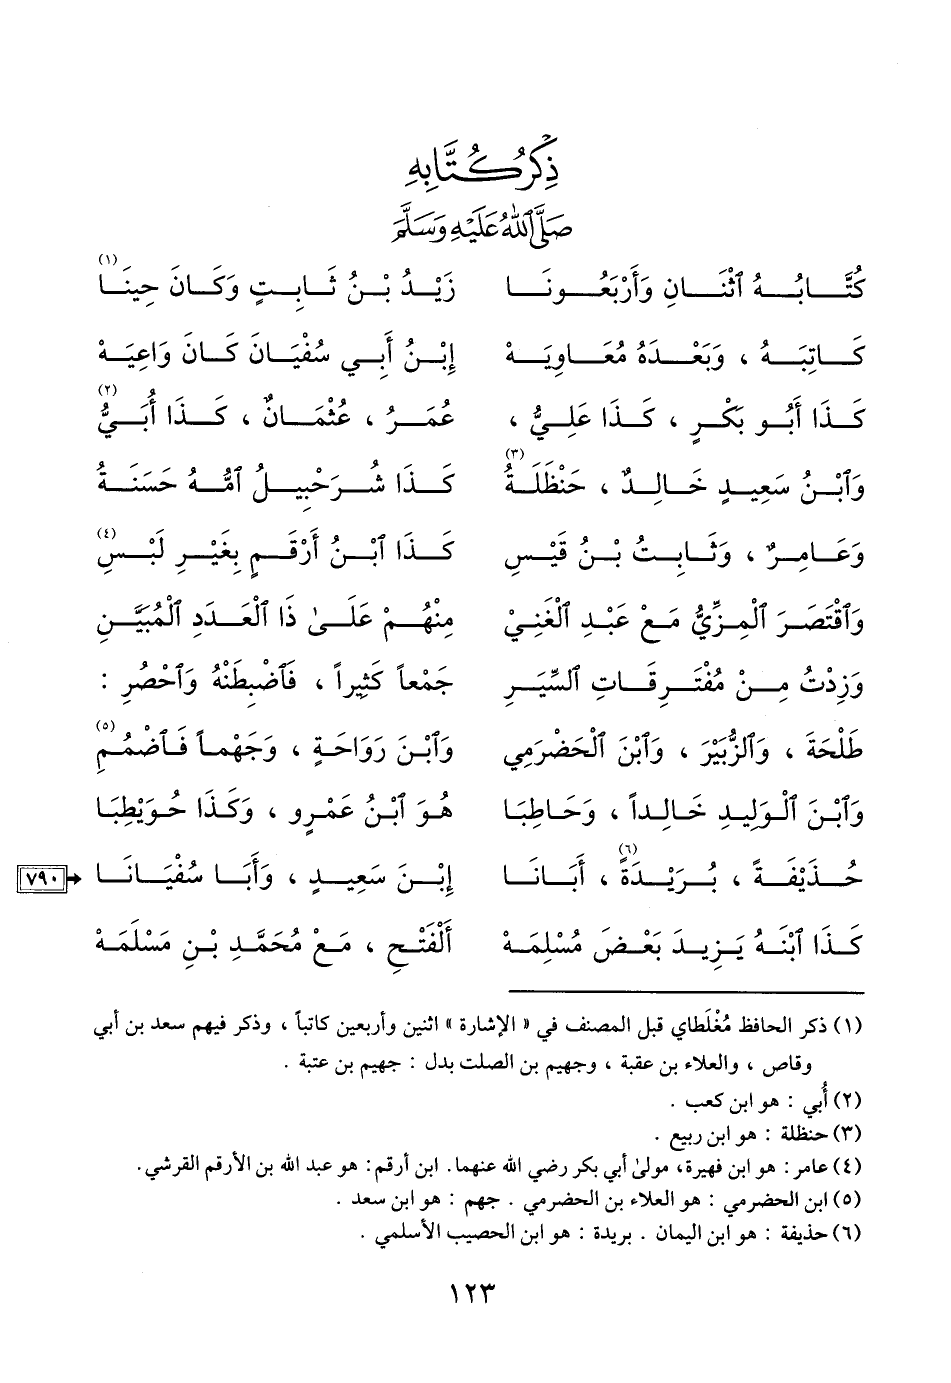 ذِكْرُ كُتَّابِهِ
صَلَّى ٱللَّهُ عَلَيْهِ وَسَلَّمَ
كُتَّابُهُ ٱثْنَانِ وَأَرْبَعُونَا زَيْدُ بْنُ ثَابِتٍ وَكَانَ حِينَا (١)
كَاتِبَهُ ، وَبَعْدَهُ مُعَاوِيَهْ إِبْنُ أَبِي سُفْيَانَ كَانَ وَاعِيَهْ
كَذَا أَبُو بَكْرٍ ، كَذَا عَلِيُّ ، عُمَرُ ، عُثْمَانٌ ، كَذَا أُبَيُّ (٢)
وَٱبْنُ سَعِيدٍ خَالِدٌ ، حَنْظَلَةُ (٣) كَذَا شُرَحْبِيلُ ٱمُّهُ حَسَنَةُ
وَعَامِرٌ ، وَثَابِتُ بْنُ قَيْسِ كَذَا ٱبْنُ أَرْقَمٍ بِغَيْرِ لَبْسِ (٤)
وَٱقْتَصَرَ ٱلْمِزِّيُّ مَعْ عَبْدِ ٱلْغَنِيْ مِنْهُمْ عَلَىٰ ذَا ٱلْعَدَدِ ٱلْمُبَيَّنِ
وَزِدْتُ مِنْ مُفْتَرِقَاتِ ٱلسِّيَرِ جَمْعاً كَثِيراً ، فَٱضْبِطَنْهُ وَٱحْصُرِ :
طَلْحَةَ ، وَٱلزُّبَيْرَ ، وَٱبْنَ ٱلْحَضْرَمِي وَٱبْنَ رَوَاحَةٍ ، وَجَهْماً فَٱضْمُمِ (٥)
وَٱبْنَ ٱلْوَلِيدِ خَالِداً ، وَحَاطِبَا هُوَ ٱبْنُ عَمْرٍو ، وَكَذَا حُوَيْطِبَا
حُذَيْفَةً ، بُرَيْدَةً (٦) ، أَبَانَا إِبْنَ سَعِيدٍ ، وَأَبَا سُفْيَانَا ٧٩٠
كَذَا ٱبْنَهُ يَزِيدَ بَعْضَ مُسْلِمَهْ أَلْفَتْحِ ، مَعْ مُحَمَّدِ بْنِ مَسْلَمَهْ
(١) ذكر الحافظ مُغْلَطاي قبل المصنف في « الإشارة » اثنين وأربعين كاتباً ، وذكر فيهم سعد بن أبي
وقاص ، والعلاء بن عقبة ، وجهيم بن الصلت بدل : جهيم بن عتبة .
(٢) أُبي : هو ابن كعب .
(٣) حنظلة : هو ابن ربيع .
(٤) عامر: هو ابن فهيرة، مولىٰ أبي بكر رضي الله عنهما. ابن أرقم: هو عبد الله بن الأرقم القرشي.
(٥) ابن الحضرمي : هو العلاء بن الحضرمي . جهم : هو ابن سعد .
(٦) حذيفة : هو ابن اليمان . بريدة : هو ابن الحصيب الأسلمي .
١٢٣